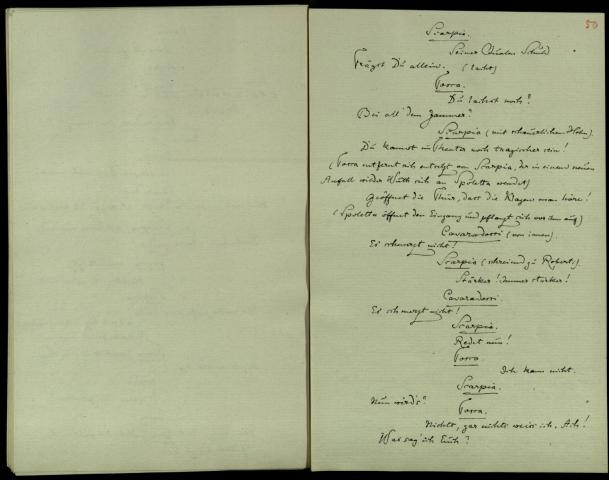 50
Scarpia.
Seiner Qualen Schuld
Trägst Du allein. (lacht)
Tosca.
Du lachst noch?
Bei all' dem Jammer?
Scarpia (mit schauerlichem Hohn).
Du kannst im Theater noch tragischer sein!
(Tosca entfernt sich entsetzt von Scarpia, der in einem neuen
Anfall wilder Wuth sich an Spoletta wendet)
Geöffnet die Thür, dass die Klagen man höre!
(Spoletta öffnet den Eingang und pflanzt sich vor ihm auf)
Cavaradossi (von innen).
Es schmerzt nicht!
Scarpia (schreiend zu Roberti).
Stärker! Immer stärker!
Cavaradossi.
Es schmerzt nicht!
Scarpia.
Redet nun!
Tosca.
Ich kann nicht.
Scarpia.
Nun wird's?
Tosca.
Nichts, gar nichts weiss ich. Ach!
Was sag' ich Euch?